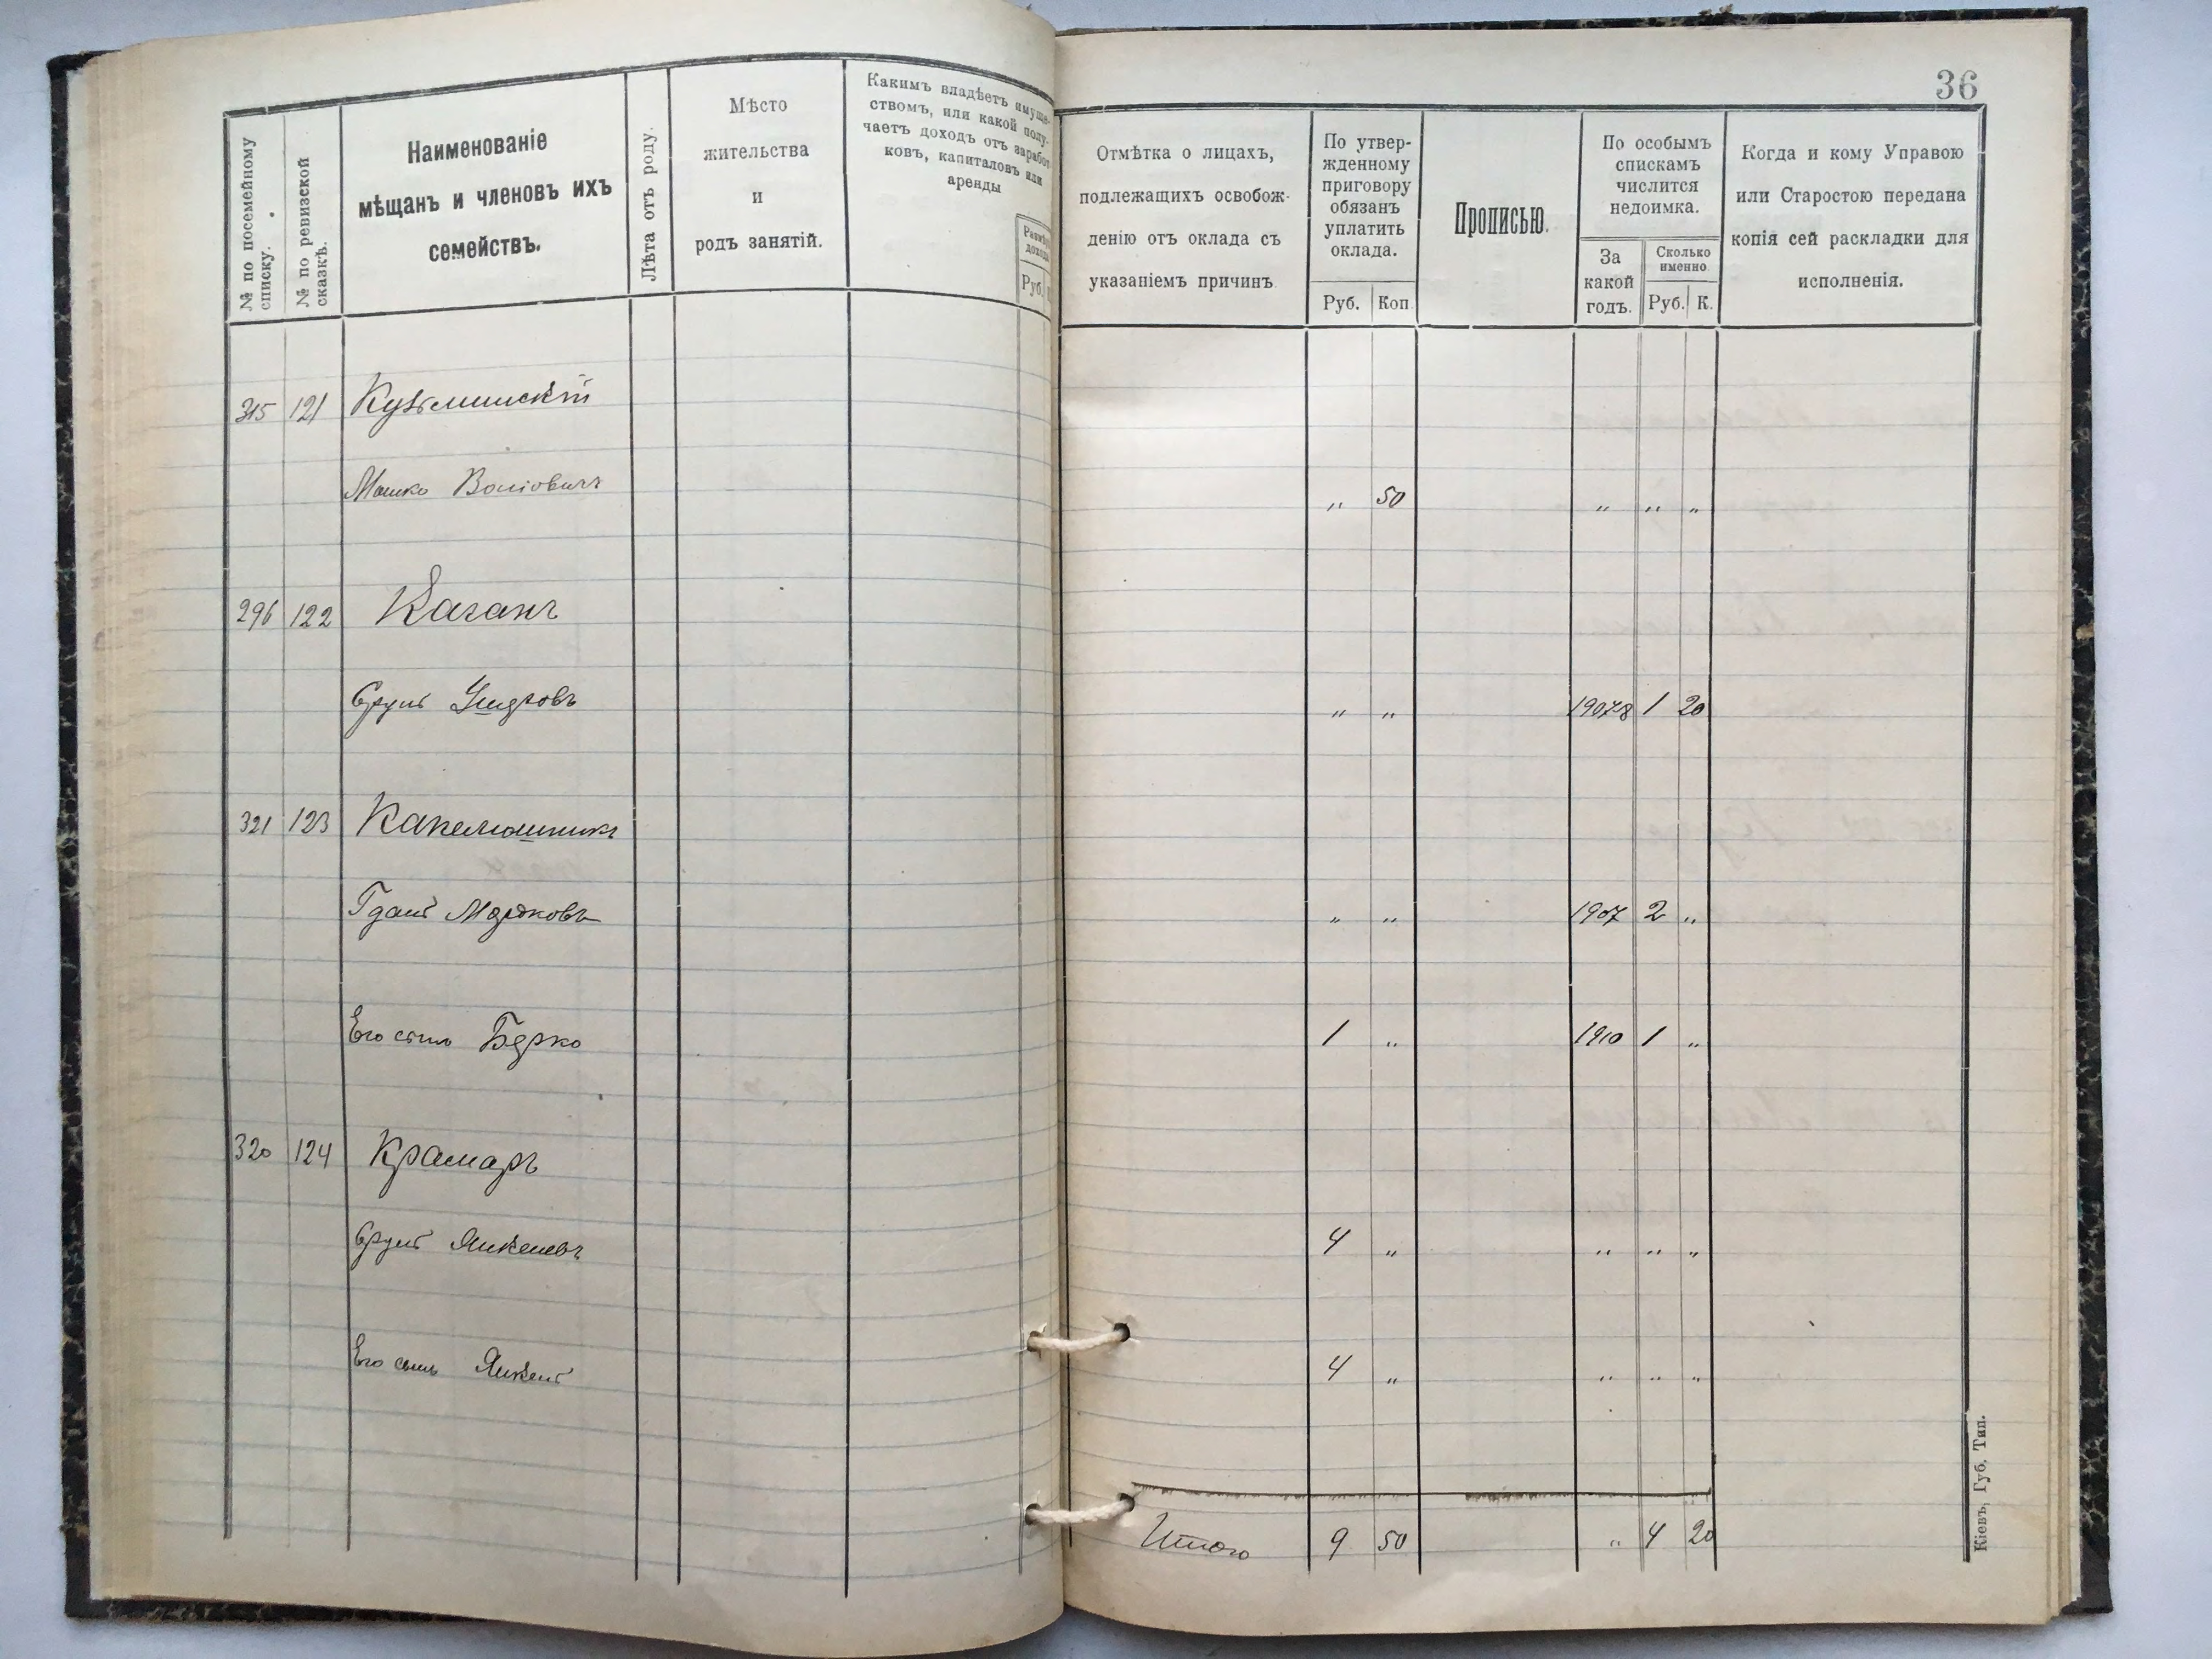 36
№ по посемейному
списку.
№ по ревизской
сказкѣ.
Наименованіе
мѣщанъ и членовъ ихъ
семействъ.
Лѣта отъ роду.
Мѣсто
жительства
и
родъ занятій.
Какимъ владѣетъ имуще-
ствомъ, или какой полу-
чаетъ доходъ отъ заработ
ковъ, капиталовъ или
аренды
Руб.
Отмѣтка о лицахъ,
подлежащихъ освобож-
денію отъ оклада съ
указаніемъ причинъ
По утвер-
жденному
приговору
обязанъ
уплатить
оклада.
Руб. Коп
Прописью.
По особымъ
спискамъ
числится
недоимка.
За
какой
годъ.
Сколько
именно
Руб. К.
Когда и кому Управою
или Старостою передана
копія сей раскладки для
исполненія.
315 121 Кузьминскій
Мошко Волiовичъ „ 50 „ „ „
296 122 Каганъ
Сруль „ „ 1907/8 1 20
321 123 Капелюшникъ
Гдаль Мордковъ „ „ 1907 2 „
Его сынъ Берко 1 „ 1910 1 „
320 124 Крамаръ
Сруль Янкелевъ 4 „ „ „ „
Его сынъ Янкель 4 „ „ „ „
Итого 9 50 „ 4 20
Кіевъ, Губ. Тип.